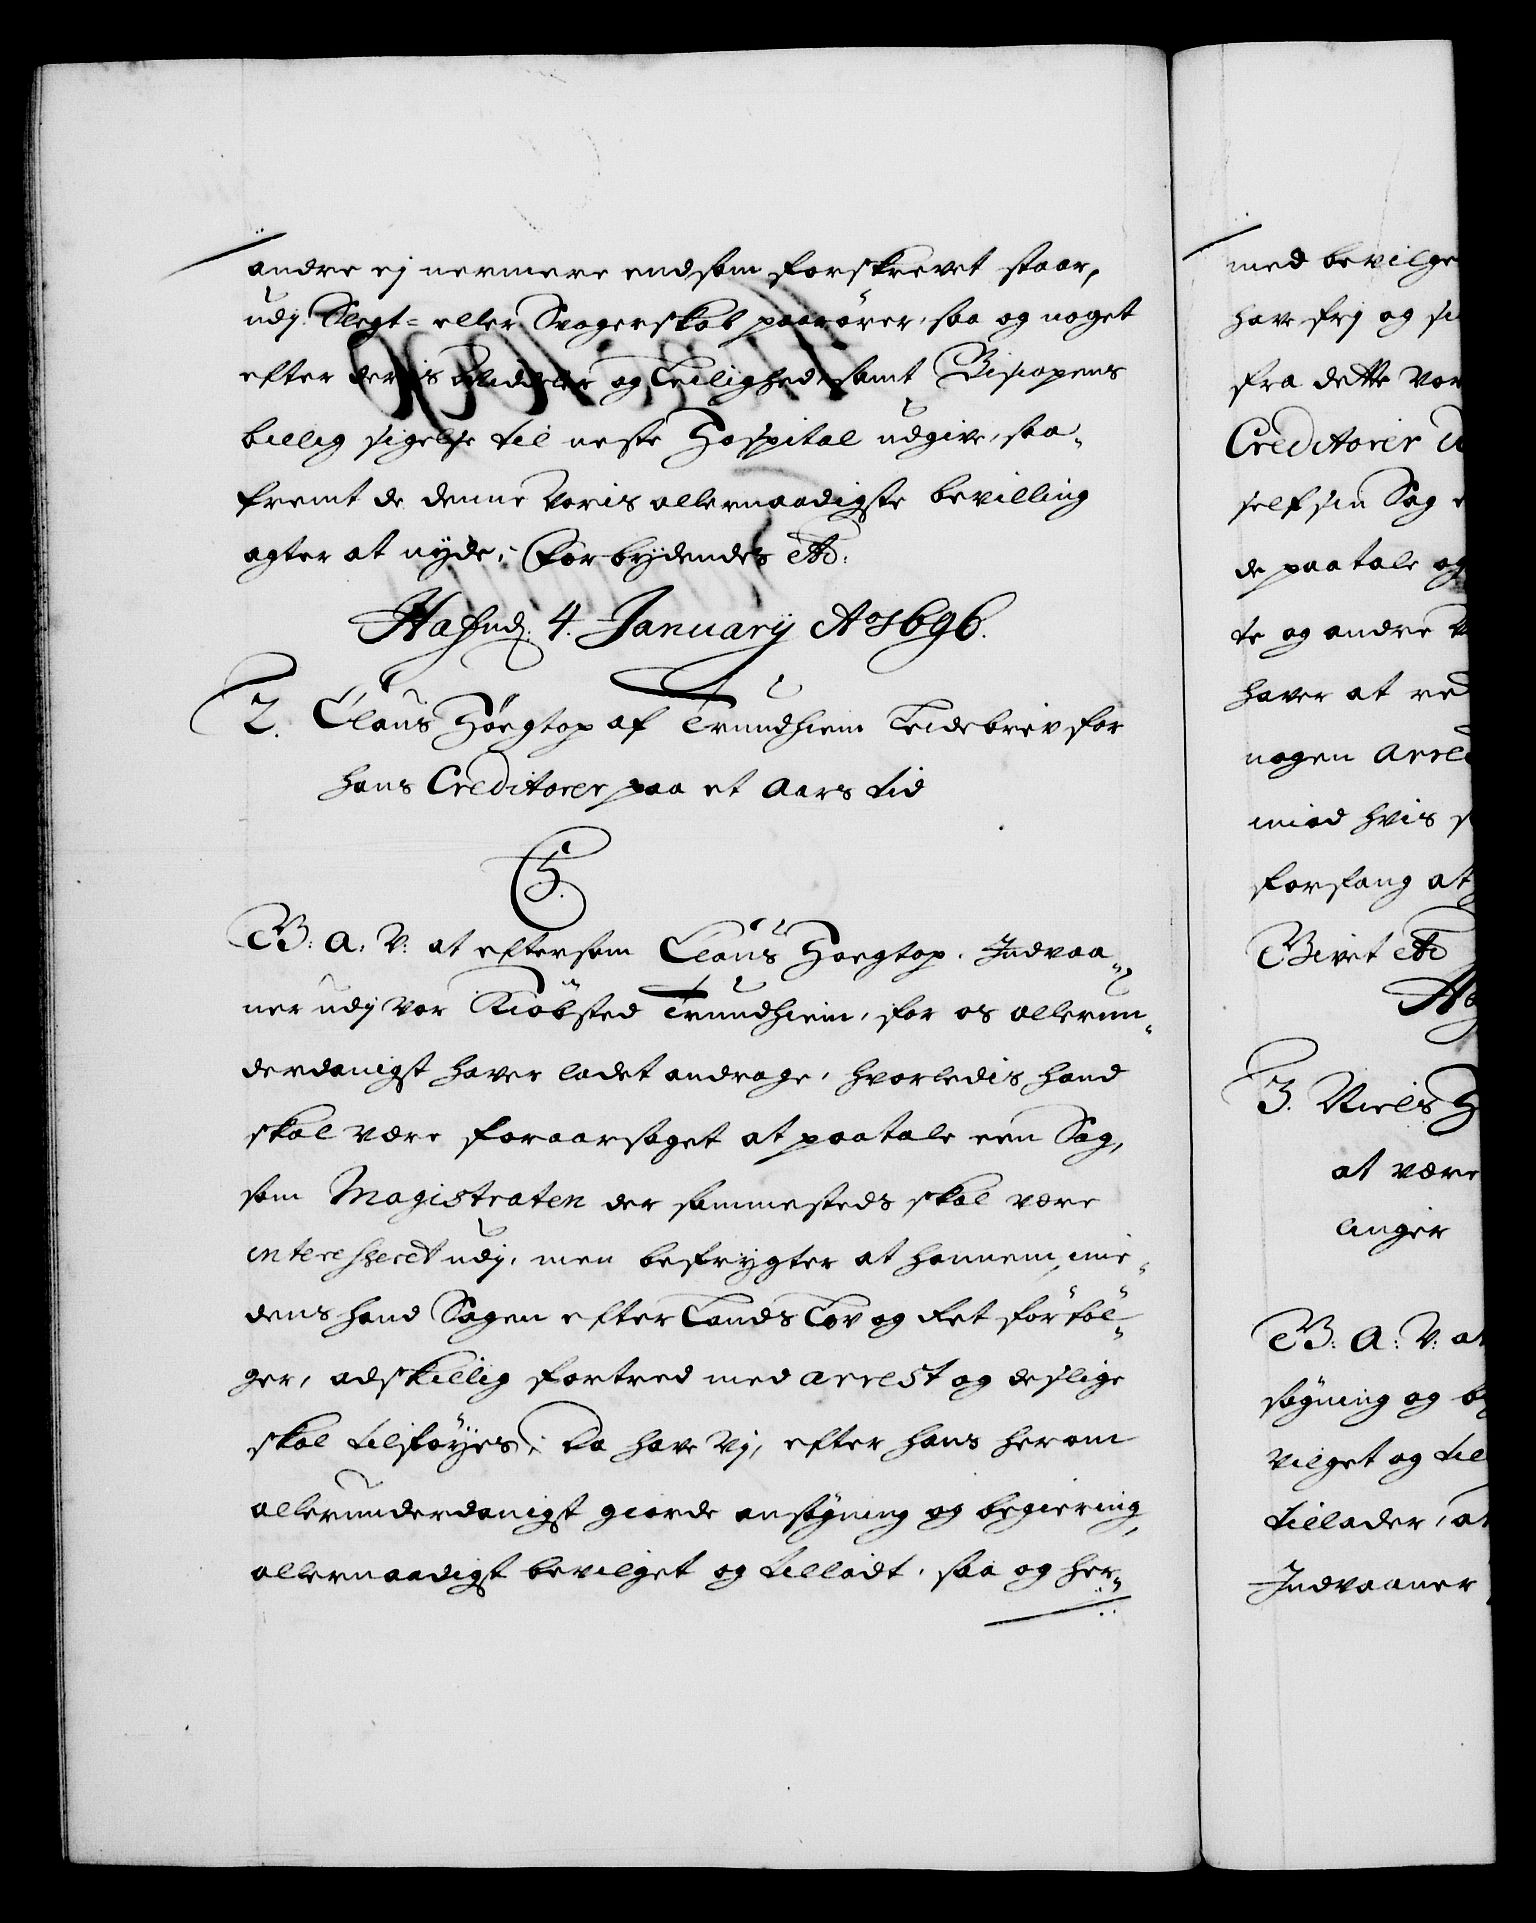 andre ej nermere end som forskrevet staar,
udj Slegt= eller Svogerskab paarører, saa og noget
efter deris Middeler og Leilighed, samt Biscopens
billig sigelse til neste Hospital udgive, saa-
fremt de denne Voris allernaadigste bevilling
agter at nyde; Forbydendes etc:
Hafnd. 4. Januarij Ao 1696.
2. Claus Høegtop af Trundhiem Leidebrev for
hans Creditorer paa et Aars tid
C5.
G: A: V: at eftersom Claus Høegtop, Indvaa-
ner udj vor Kiøbsted Trundhiem, for os allerun-
derdanigst haver ladet andrage, hvorledis hand
skal være foraarsaget at paatale een Sag,
som Magistraten der sammesteds skal være
interesseret udj, men befrygter at hannem, mie-
dens hand Sagen efter Lands Lov og Ret forføl-
ger, adskillig fortred med arrest og deslige
skal tilføyes; Da have Vj, efter hans herom
allerunderdanigst giorde ansøgning og begiering,
allernaadigst bevilget og tilladt, saa og her-
med bevilge
have frj og
fra dette Vor
Creditorer
self sin Sag
de paatale og
te og andre
haver at
nogen arre
imod hvis
forfang at
Givet etc
3. Niels H
at være
anger
G: A: V: at
søgning og
vilget og til
tillader, at
Indvaaner